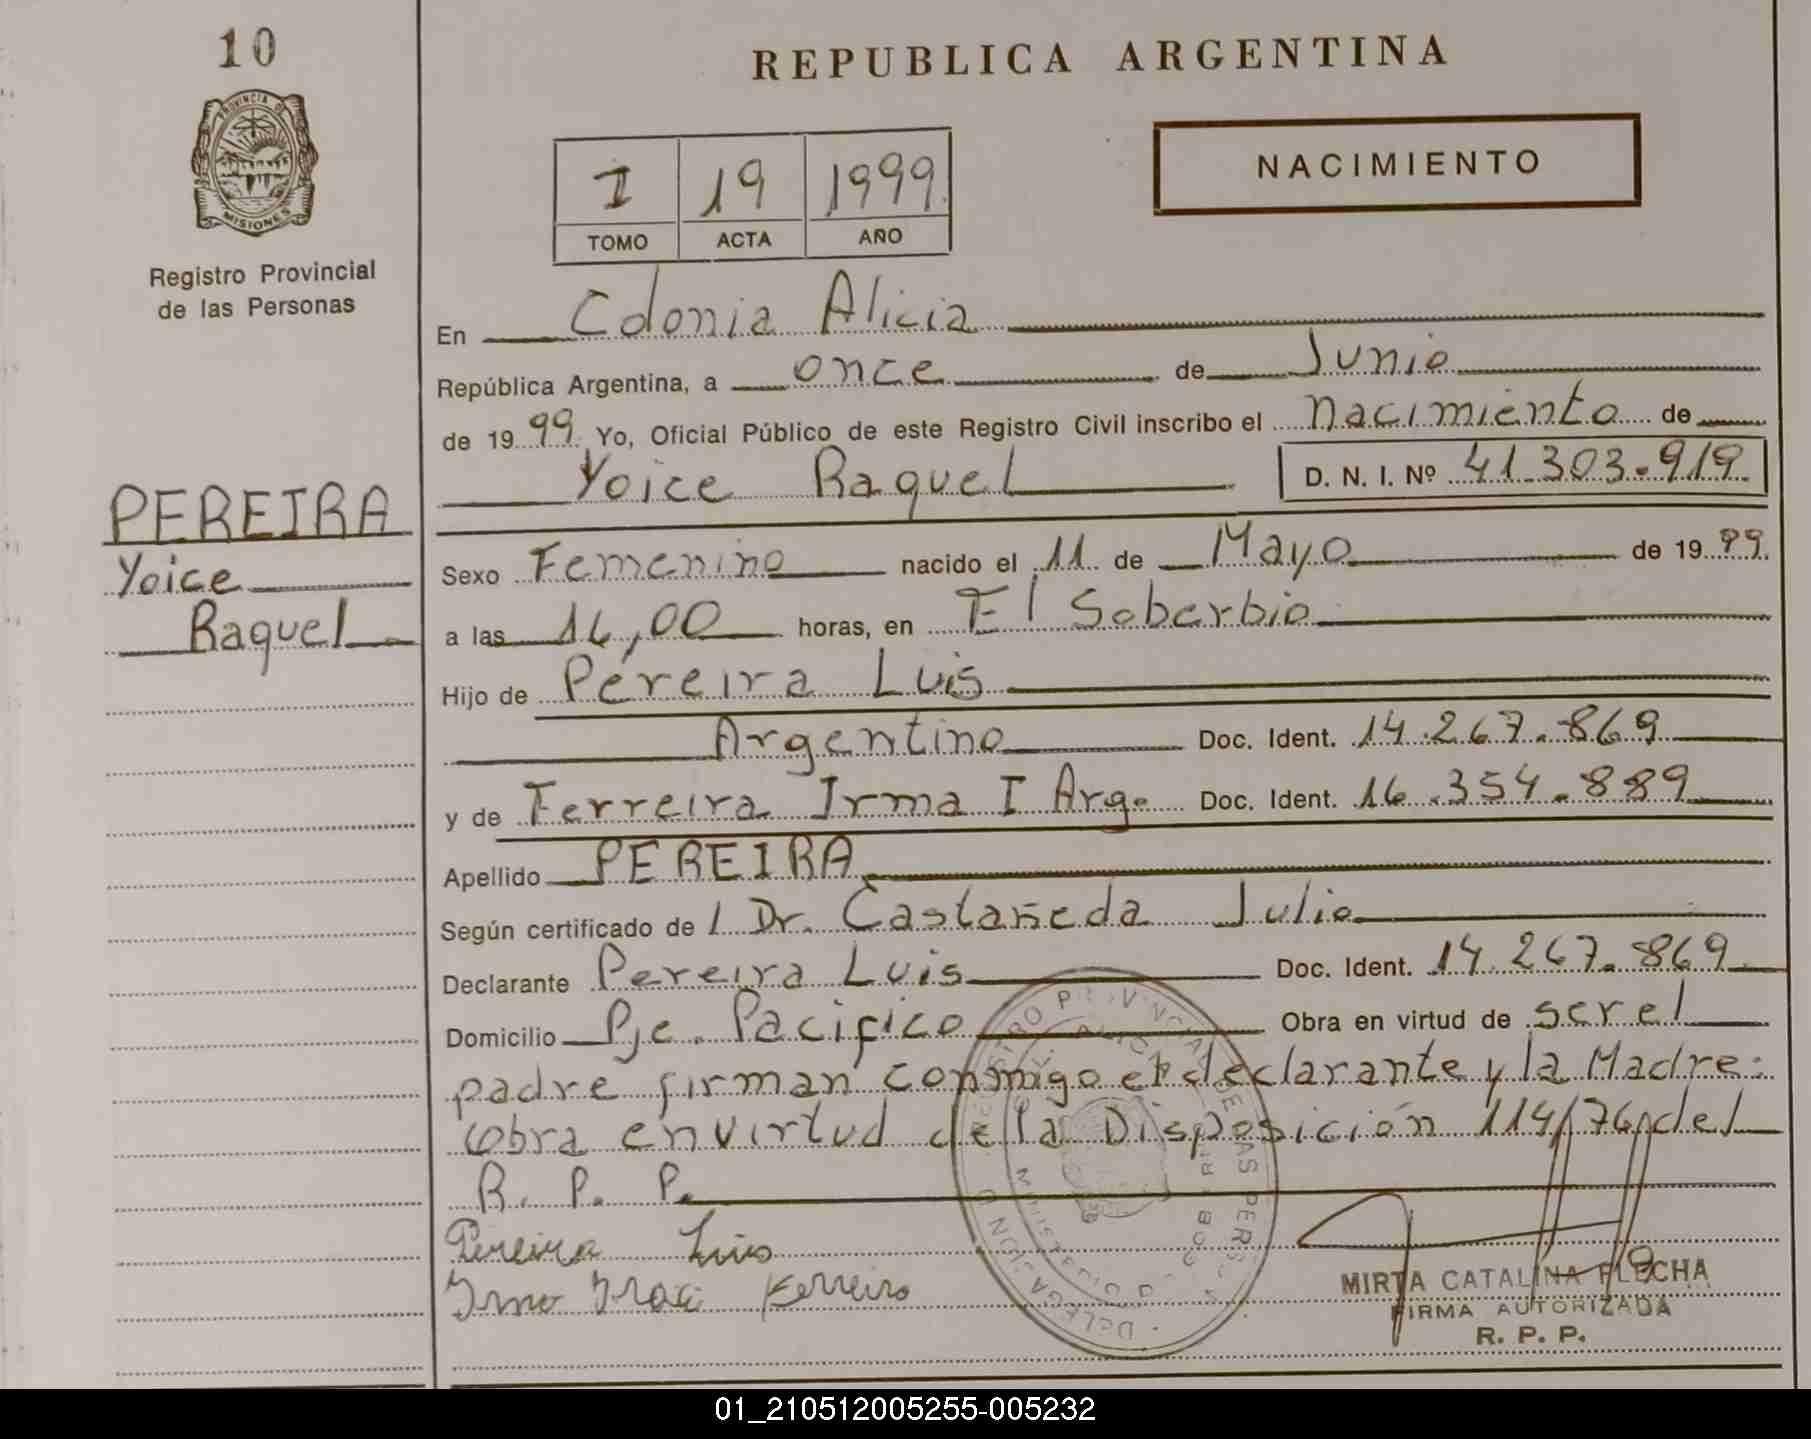 10
PROVINCIA DE
MISIONES
Registro Provincial
de las Personas
PEREIRA
Yoice
Raquel
REPUBLICA ARGENTINA
NACIMIENTO
I 19 1999
TOMO ACTA AÑO
En Colonia Alicia
República Argentina, a once de Junio
de 19 99. Yo, Oficial Público de este Registro Civil inscribo el nacimiento de
Yoice Raquel D. N. I. Nº 41.303.919
Sexo Femenino nacido el 11 de Mayo de 19 99.
a las 16,00 horas, en El Soberbio
Hijo de Pereira Luis
Argentino Doc. Ident. 14.267.869
y de Ferreira Irma I Arg. Doc. Ident. 16.354.889
Apellido PEREIRA
Según certificado de / Dr. Castañeda Julio
Declarante Pereira Luis Doc. Ident. 14.267.869
Domicilio Pje. Pacifico Obra en virtud de ser el
padre firman conmigo el declarante y la Madre:
obra en virtud de la Disposición 114/76 del
R. P. P.
Pereira Luis
Irma Iraci Ferreira
MIRTA CATALINA FLECHA
FIRMA AUTORIZADA
R. P. P.
01_210512005255-005232